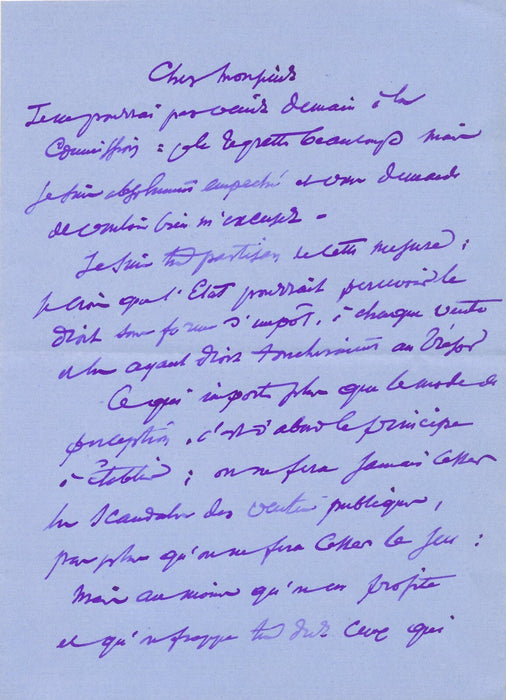 Cher Monsieur
Je ne pourrai pas venir demain à la
Commission : je le regrette beaucoup mais
je suis absolument empêché et vous demande
de vouloir bien m'excuser -
Je suis très partisan de cette mesure ;
je crois que l'Etat pourrait percevoir le
droit sous forme d'impôt, à chaque vente
et les ayant droit toucheraient au Trésor
Ce qui importe plus que le mode de
perception, c'est d'abord le principe
à établir ; on ne fera jamais cesser
les scandales des ventes publiques,
pas plus qu'on ne fera cesser le jeu :
Mais au moins qu'on en profite
et qu'on frappe ceux qui